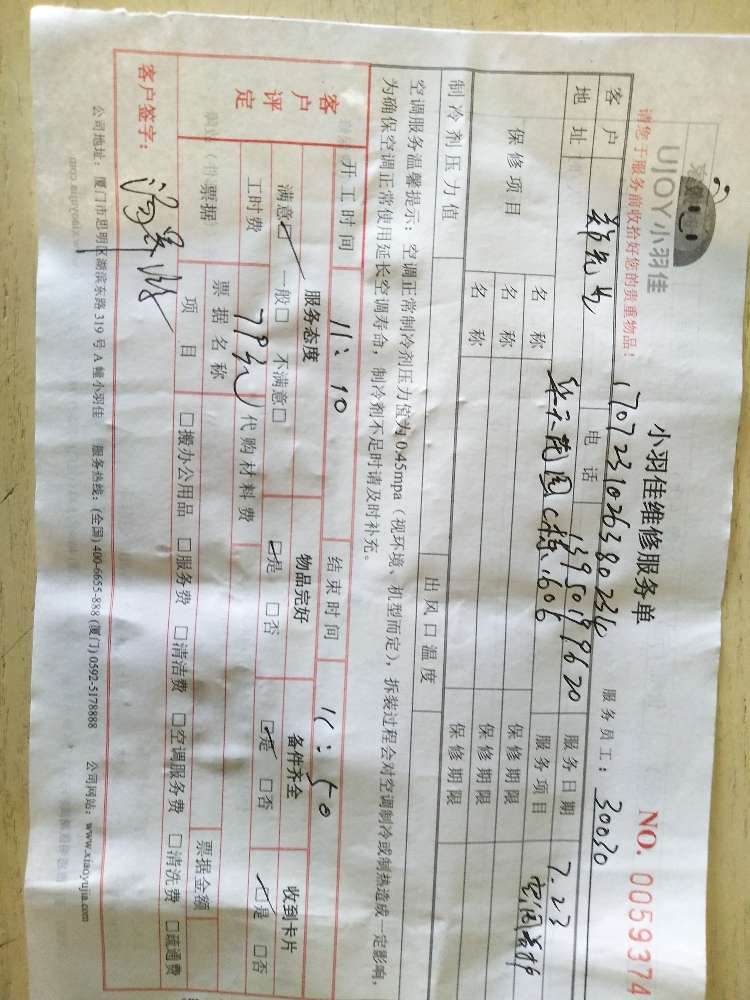 UJOY小羽佳
小羽佳维修服务单
NO. 0059374
请您于服务前收拾好您的贵重物品！
170723102638023
服务员工：30030
客户 郑先生 电话 13950199620 服务日期 7.23
地址 花园C栋1606 服务项目 空调
保修项目 名称 保修期限
名称 保修期限
名称 保修期限
制冷剂压力值 出风口温度
空调服务温馨提示：空调正常制冷剂压力值为0.45mpa（视环境、机型而定），拆装过程会对空调制冷或制热造成一定影响，
为确保空调正常使用延长空调寿命，制冷剂不足时请及时补充。
开工时间 11：10 结束时间 11：50
客户评定 服务态度 物品完好 备件齐全 收到卡片
满意☑ 一般□ 不满意□ ☑是 □否 ☑是 □否 ☑是 □否
工时费 79元 代购材料费
票据 票据名称 票据金额
项目 □搬办公用品 □服务费 □清洁费 □空调服务费 □清洗费 □疏通费
客户签字：
公司地址：厦门市思明区湖滨东路319号A幢小羽佳 服务热线：(全国) 400-6655-888 (厦门) 0592-5178888 公司网站：www.xiaoyujia.com